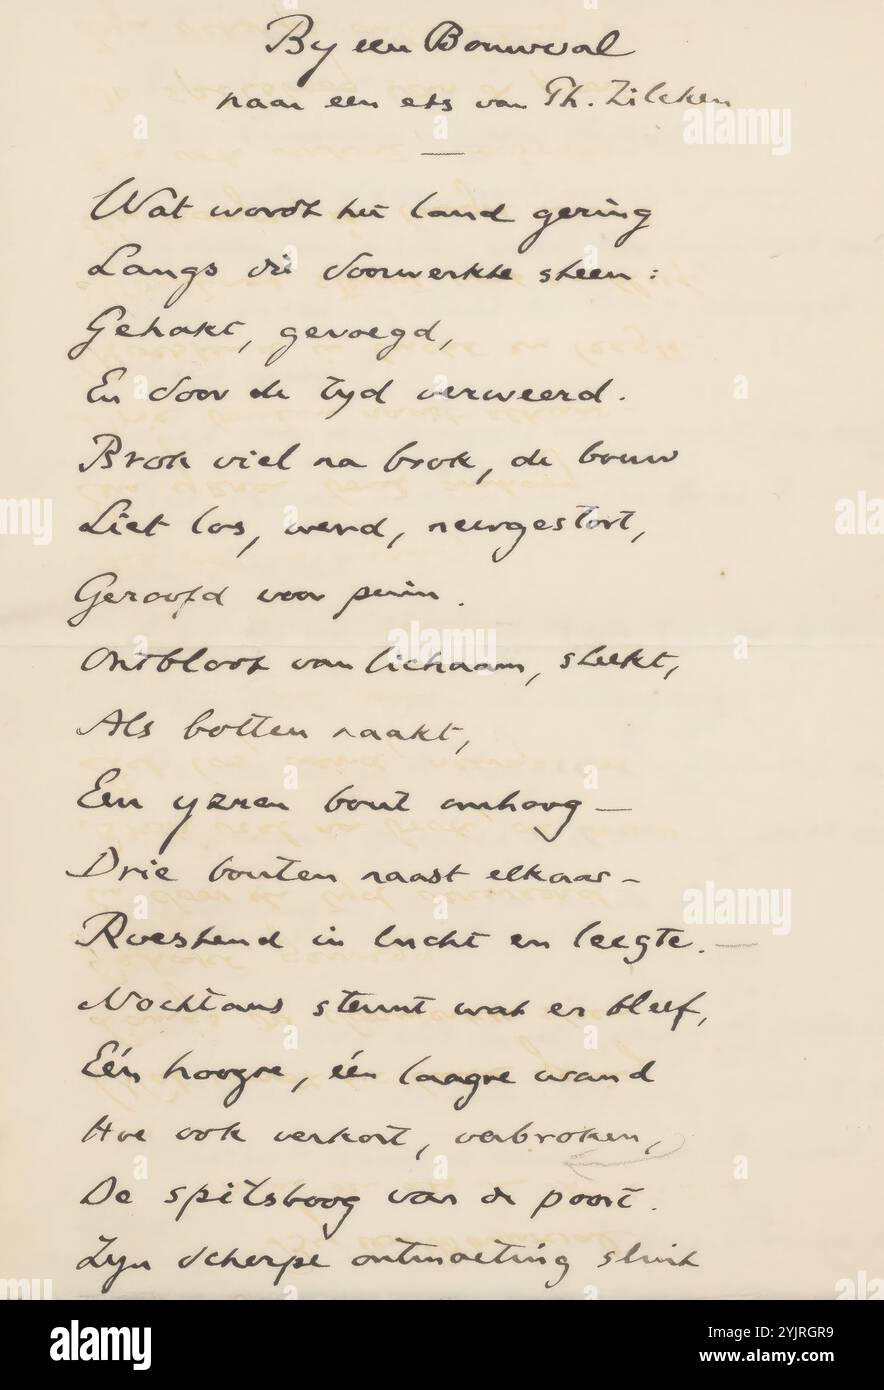 By een Bouwval
naar een ets van Th. Zilcken
Wat wordt het land gering
Langs die doorwerkte steen:
Gehakt, gevoegd,
En door de tyd verweerd.
Brok viel na brok, de bouw
Liet los, werd, neergestort,
Geroofd voor puin.
Ontbloot van lichaam, steekt,
Als botten naakt,
Een yzren bout omhoog —
Drie bouten naast elkaar —
Roestend in lucht en leegte. —
Nochtans steunt wat er bleef,
Eén hoogre, één laagre wand
Hoe ook verkort, verbroken,
De spitsboog van de poort.
Zyn scherpe ontmoeting sluit
alamy
Image ID: 2YJRGR9
www.alamy.com